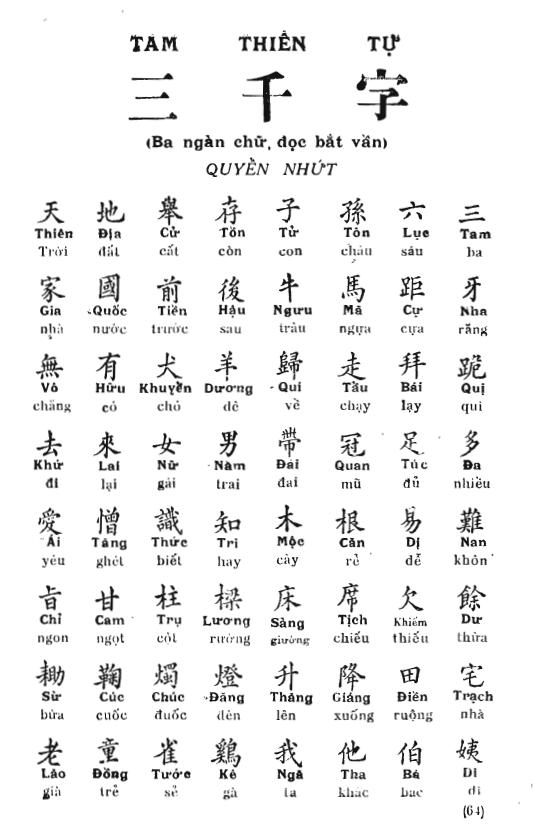 TAM THIÊN TỰ
三千字
(Ba ngàn chữ, đọc bắt vần)
QUYỀN NHỨT
天 地 舉 存 子 孫 六 三
Thiên Địa Cử Tồn Tử Tôn Lục Tam
Trời đất cất còn con cháu sáu ba
家 國 前 後 牛 馬 距 牙
Gia Quốc Tiền Hậu Ngưu Mã Cự Nha
nhà nước trước sau trâu ngựa cựa răng
無 有 犬 羊 歸 走 拜 跪
Vô Hữu Khuyển Dương Qui Tẩu Bái Quị
chăng có chó dê về chạy lạy quì
去 來 女 男 帶 冠 足 多
Khứ Lai Nữ Nam Đái Quan Túc Đa
đi lại gái trai đai mũ đủ nhiều
愛 憎 識 知 木 根 易 難
Ái Tăng Thức Tri Mộc Căn Dị Nan
yêu ghét biết hay cây rễ dễ khôn
旨 甘 柱 樑 床 席 欠 餘
Chỉ Cam Trụ Lương Sàng Tịch Khiếm Dư
ngon ngọt cột rường giường chiếu thiếu thừa
耡 鞠 燭 燈 升 降 田 宅
Sừ Cúc Chúc Đăng Thăng Giáng Điền Trạch
bừa cuốc đuốc đèn lên xuống ruộng nhà
老 童 雀 鷄 我 他 伯 姨
Lão Đồng Tước Kê Ngã Tha Bá Di
già trẻ sẻ gà ta khác bác dì
(64)